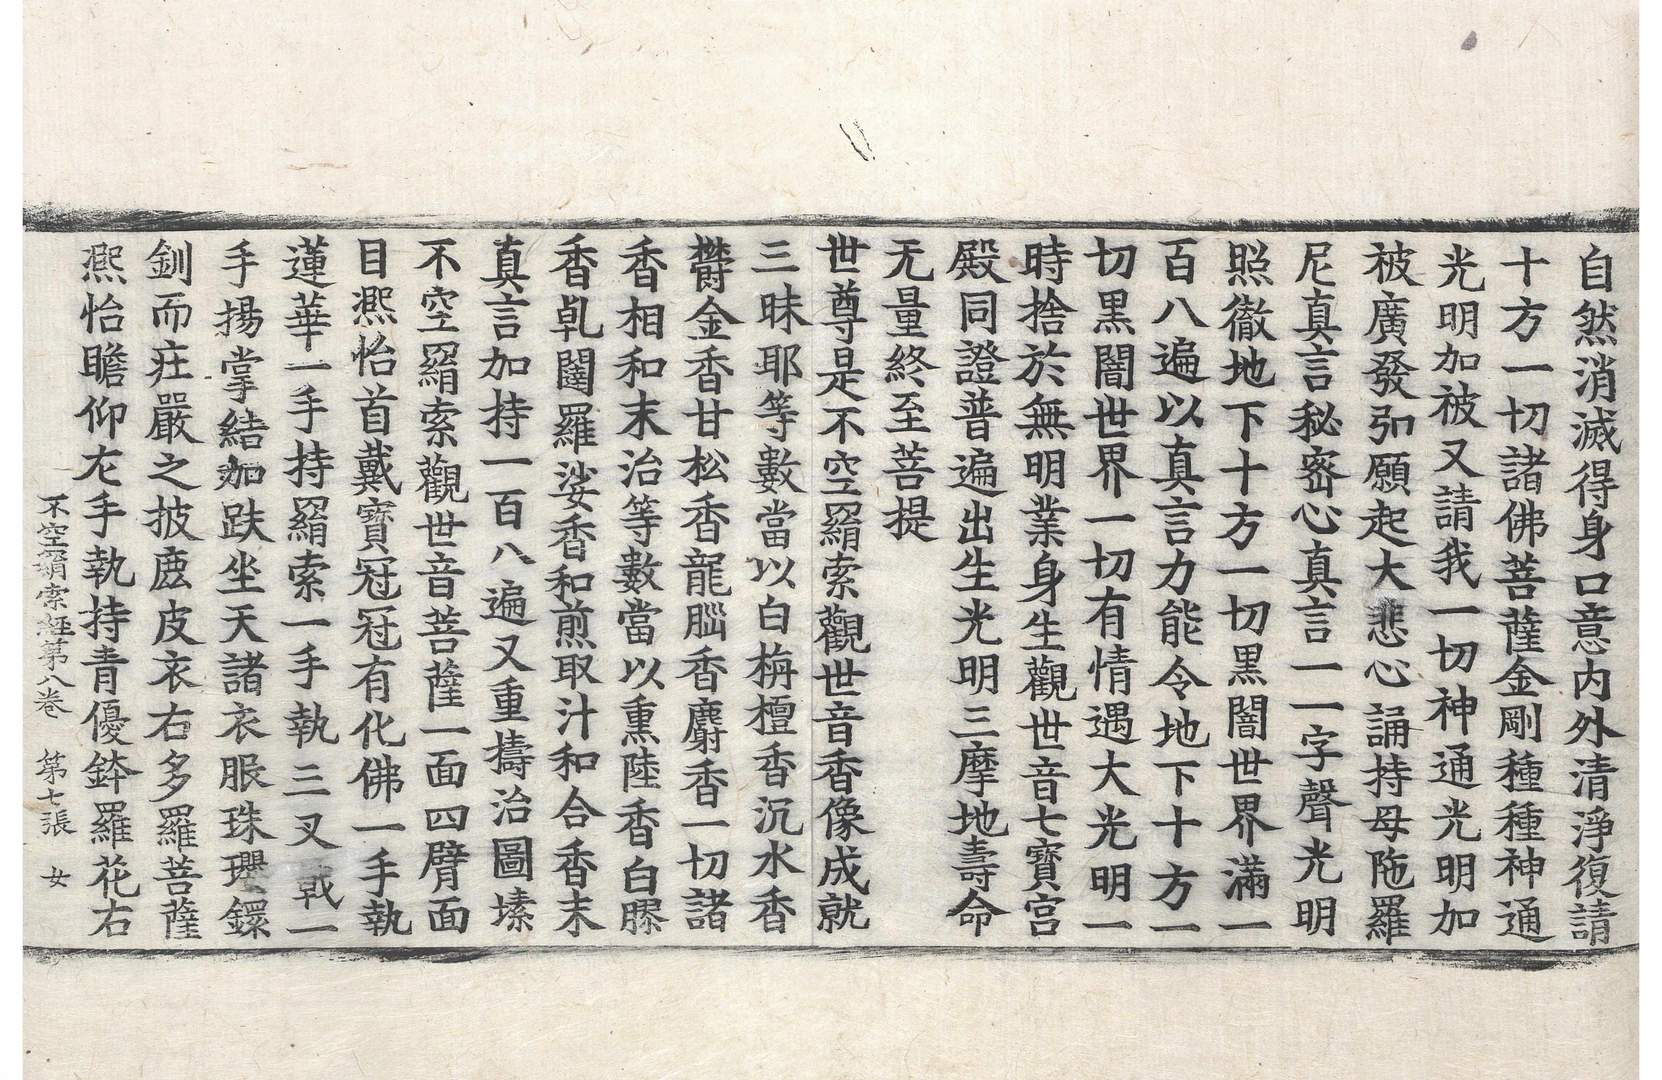 自然消滅得身口意内外清淨復請
十方一切諸佛菩薩金剛種種神通
光明加被又請我一切神通光明加
被廣發弘願起大悲心誦持母陁羅
尼真言秘密心真言一一字聲光明
照徹地下十方一切黒闇世界滿一
百八遍以真言力能令地下十方一
切黒闇世界一切有情遇大光明一
時捨於無明業身生觀世音七寶宮
殿同證普遍出生光明三摩地壽命
无量終至菩提
世尊是不空羂索觀世音香像成就
三昧耶等數當以白栴檀香沉水香
欝金香甘松香龍腦香麝香一切諸
香相和末治等數當以熏陸香白膠
香乹闥羅娑香和煎取汁和合香末
真言加持一百八遍又重擣治圖塐
不空羂索觀世音菩薩一面四臂面
目熈怡首戴寶冠冠有化佛一手執
蓮華一手持羂索一手執三叉戟一
手揚掌結加趺坐天諸衣服珠瓔鐶
釧而莊嚴之披鹿皮衣右多羅菩薩
熈怡瞻仰左手執持青優鉢羅花右
不空羂索經第八卷　第七張　女